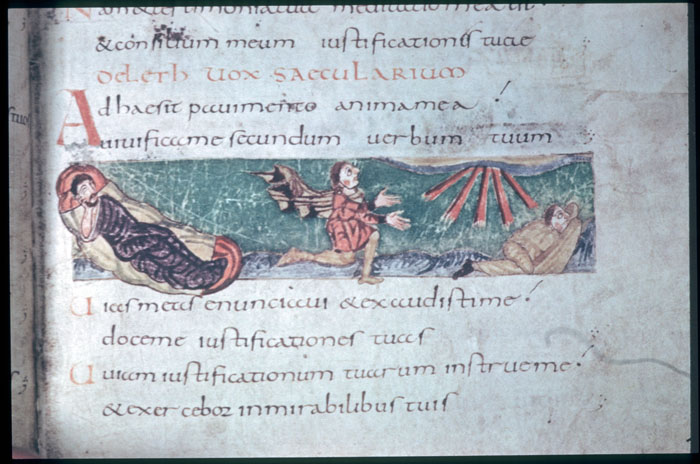 Nam & testimonia tua meditatio mea est
& consilium meum iustificationes tuae
DELETH VOX SAECULARIUM
Adhaesit pavimento anima mea
uiuifica me secundum uerbum tuum
Uias meas enunciaui & exaudisti me
doce me iustificationes tuas
Uiam iustificationum tuarum instrue me
& exercebor in mirabilibus tuis